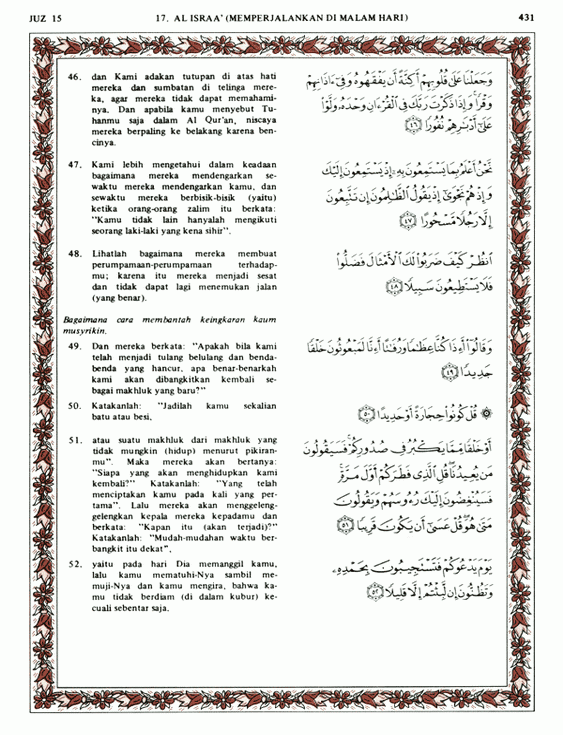 JUZ 15 17. AL ISRAA' (MEMPERJALANKAN DI MALAM HARI) 431
46. dan Kami adakan tutupan di atas hati
mereka dan sumbatan di telinga mere-
ka, agar mereka tidak dapat memahami-
nya. Dan apabila kamu menyebut Tu-
hanmu saja dalam Al Qur'an, niscaya
mereka berpaling ke belakang karena ben-
cinya.
وَجَعَلْنَا عَلَىٰ قُلُوبِهِمْ أَكِنَّةً أَن يَفْقَهُوهُ وَفِىٓ ءَاذَانِهِمْ
وَقْرًا وَإِذَا ذَكَرْتَ رَبَّكَ فِى ٱلْقُرْءَانِ وَحْدَهُۥ وَلَّوْا۟
عَلَىٰٓ أَدْبَٰرِهِمْ نُفُورًا ﴿٤٦﴾
47. Kami lebih mengetahui dalam keadaan
bagaimana mereka mendengarkan se-
waktu mereka mendengarkan kamu, dan
sewaktu mereka berbisik-bisik (yaitu)
ketika orang-orang zalim itu berkata:
"Kamu tidak lain hanyalah mengikuti
seorang laki-laki yang kena sihir".
نَّحْنُ أَعْلَمُ بِمَا يَسْتَمِعُونَ بِهِۦٓ إِذْ يَسْتَمِعُونَ إِلَيْكَ
وَإِذْ هُمْ نَجْوَىٰٓ إِذْ يَقُولُ ٱلظَّٰلِمُونَ إِن تَتَّبِعُونَ
إِلَّا رَجُلًا مَّسْحُورًا ﴿٤٧﴾
48. Lihatlah bagaimana mereka membuat
perumpamaan-perumpamaan terhadap-
mu; karena itu mereka menjadi sesat
dan tidak dapat lagi menemukan jalan
(yang benar).
ٱنظُرْ كَيْفَ ضَرَبُوا۟ لَكَ ٱلْأَمْثَالَ فَضَلُّوا۟
فَلَا يَسْتَطِيعُونَ سَبِيلًا ﴿٤٨﴾
Bagaimana cara membantah keingkaran kaum
musyrikin.
49. Dan mereka berkata: "Apakah bila kami
telah menjadi tulang belulang dan benda-
benda yang hancur, apa benar-benarkah
kami akan dibangkitkan kembali se-
bagai makhluk yang baru?"
وَقَالُوٓا۟ أَءِذَا كُنَّا عِظَٰمًا وَرُفَٰتًا أَءِنَّا لَمَبْعُوثُونَ خَلْقًا
جَدِيدًا ﴿٤٩﴾
50. Katakanlah: "Jadilah kamu sekalian
batu atau besi,
۞ قُلْ كُونُوا۟ حِجَارَةً أَوْ حَدِيدًا ﴿٥٠﴾
51. atau suatu makhluk dari makhluk yang
tidak mungkin (hidup) menurut pikiran-
mu". Maka mereka akan bertanya:
"Siapa yang akan menghidupkan kami
kembali?" Katakanlah: "Yang telah
menciptakan kamu pada kali yang per-
tama". Lalu mereka akan menggeleng-
gelengkan kepala mereka kepadamu dan
berkata: "Kapan itu (akan terjadi)?"
Katakanlah: "Mudah-mudahan waktu ber-
bangkit itu dekat",
أَوْ خَلْقًا مِّمَّا يَكْبُرُ فِى صُدُورِكُمْ فَسَيَقُولُونَ
مَن يُعِيدُنَا قُلِ ٱلَّذِى فَطَرَكُمْ أَوَّلَ مَرَّةٍ
فَسَيُنْغِضُونَ إِلَيْكَ رُءُوسَهُمْ وَيَقُولُونَ
مَتَىٰ هُوَ قُلْ عَسَىٰٓ أَن يَكُونَ قَرِيبًا ﴿٥١﴾
52. yaitu pada hari Dia memanggil kamu,
lalu kamu mematuhi-Nya sambil me-
muji-Nya dan kamu mengira, bahwa ka-
mu tidak berdiam (di dalam kubur) ke-
cuali sebentar saja.
يَوْمَ يَدْعُوكُمْ فَتَسْتَجِيبُونَ بِحَمْدِهِۦ
وَتَظُنُّونَ إِن لَّبِثْتُمْ إِلَّا قَلِيلًا ﴿٥٢﴾